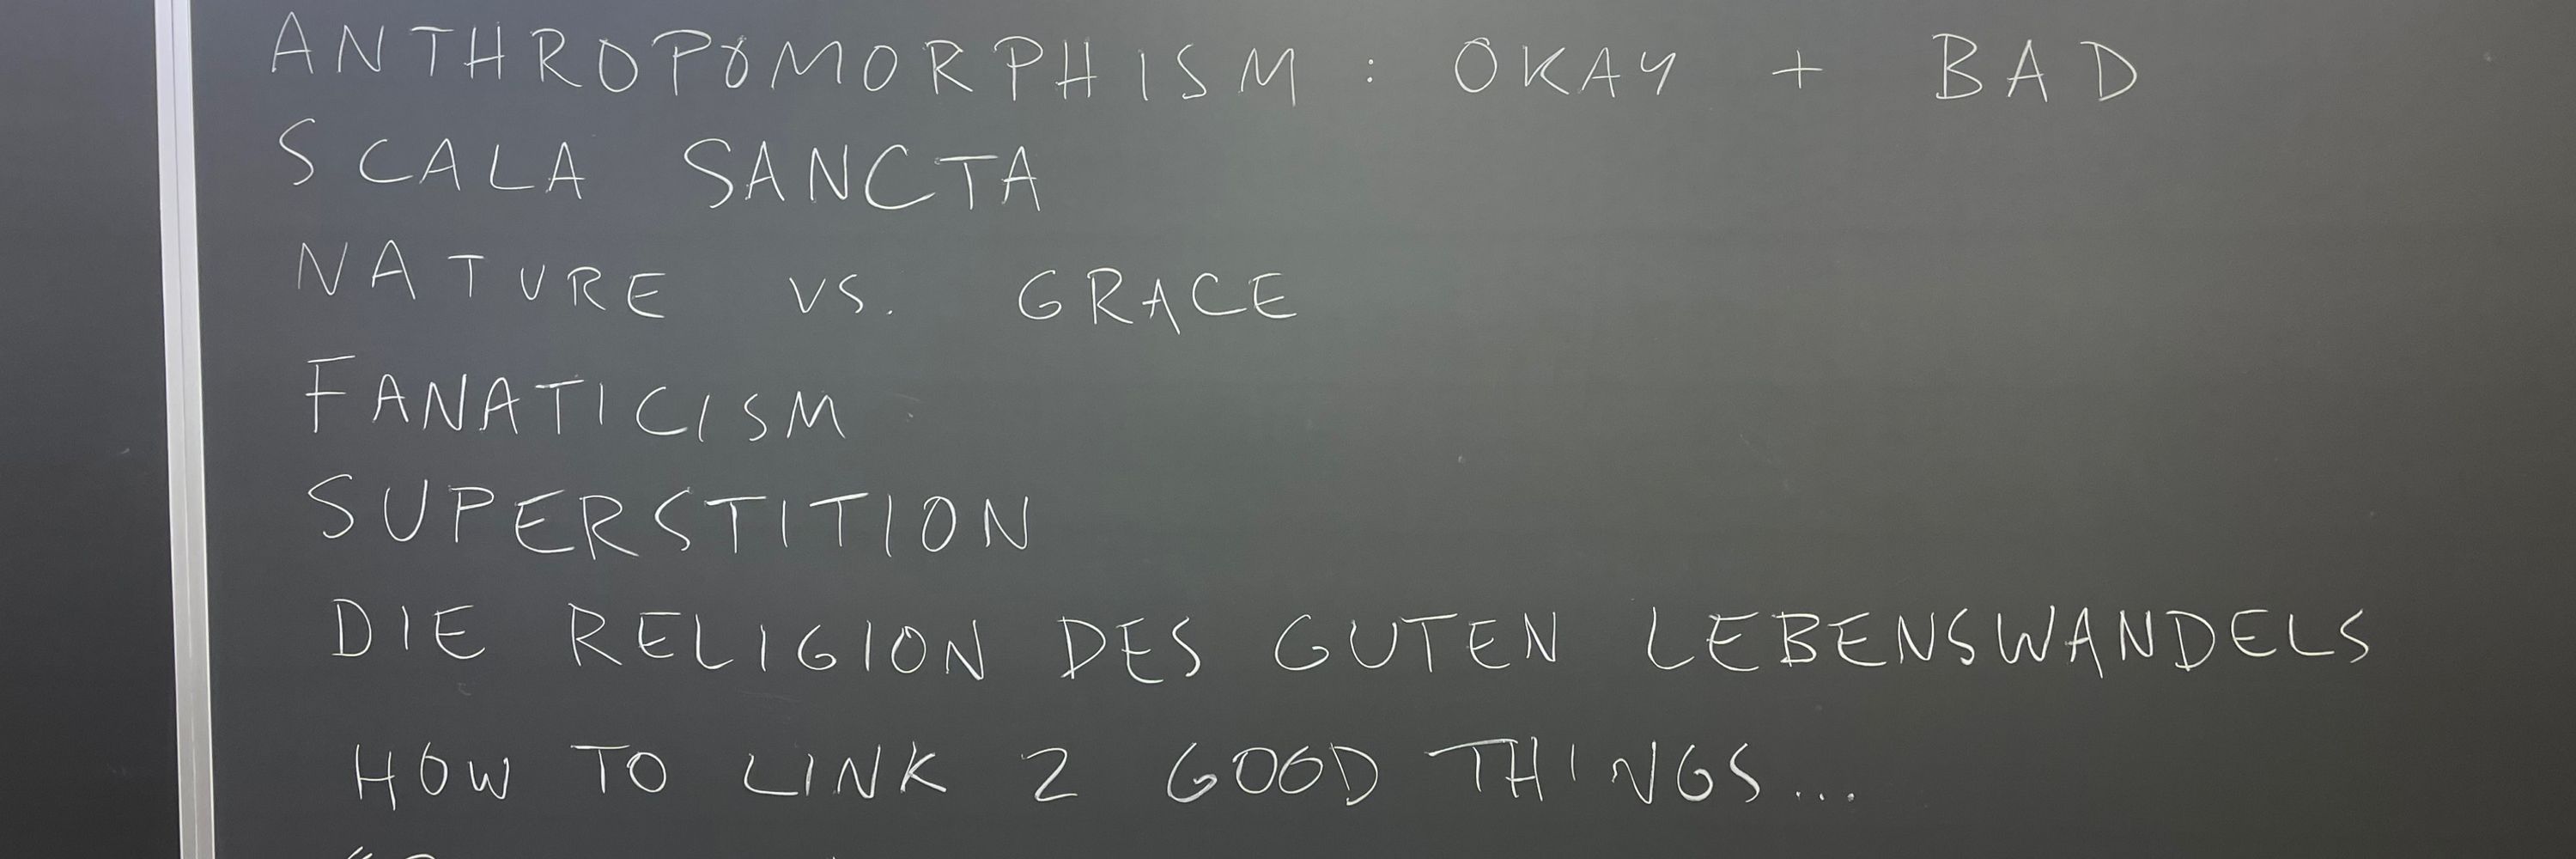 ANTHROPOMORPHISM : OKAY + BAD
SCALA SANCTA
NATURE VS. GRACE
FANATICISM
SUPERSTITION
DIE RELIGION DES GUTEN LEBENSWANDELS
HOW TO LINK 2 GOOD THINGS...